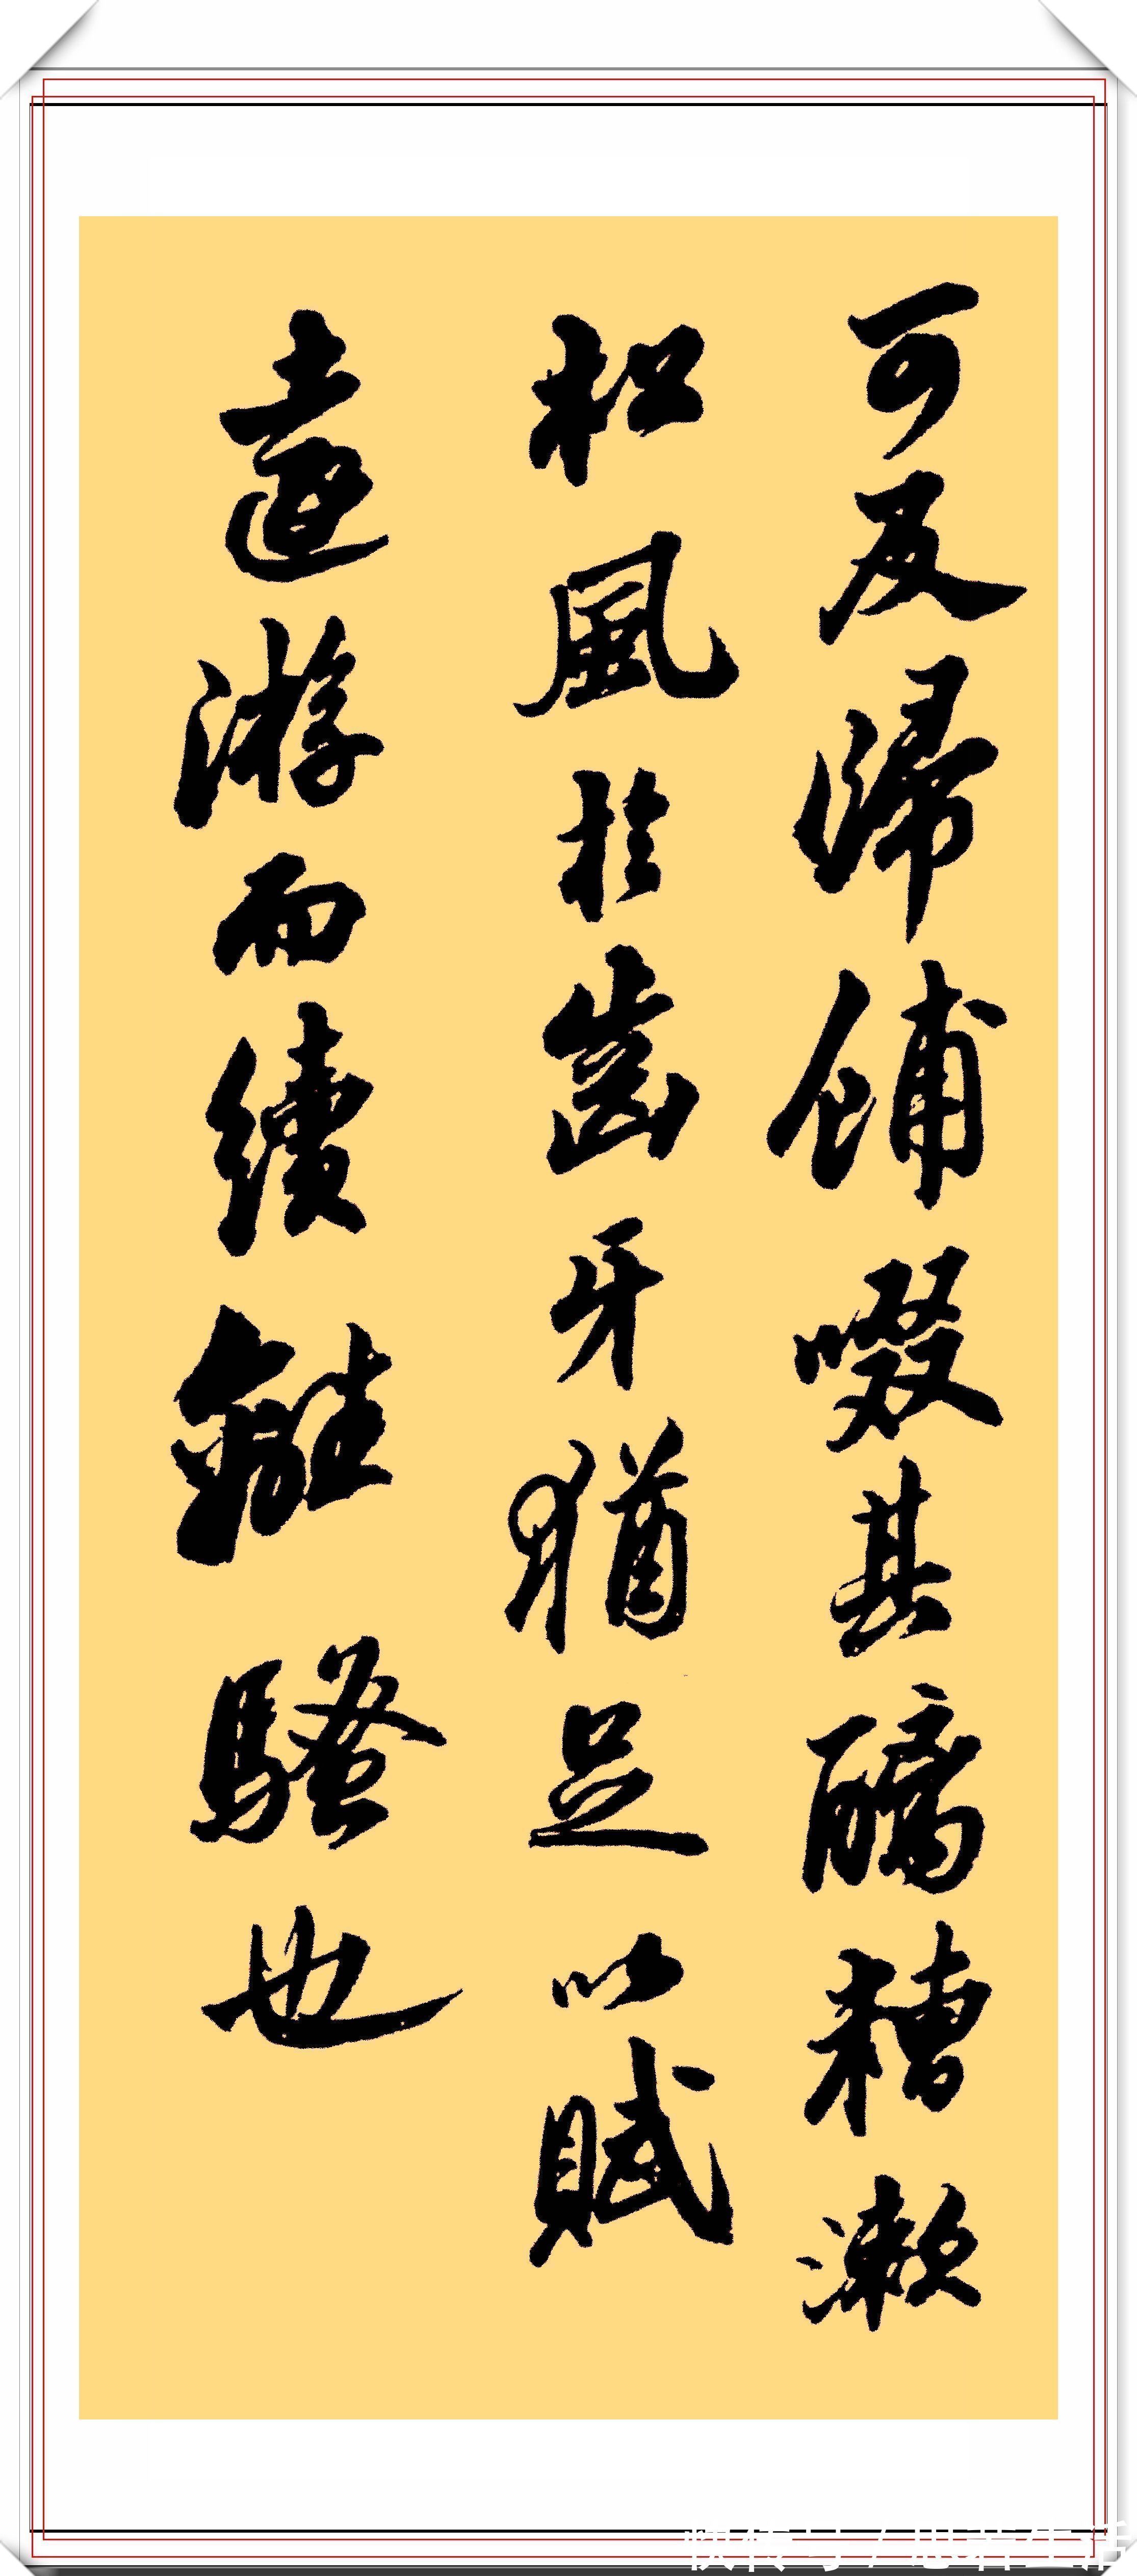 可反歸餔啜其醨糟漱
松風於齒牙猶足以賦
遠游而續離騷也